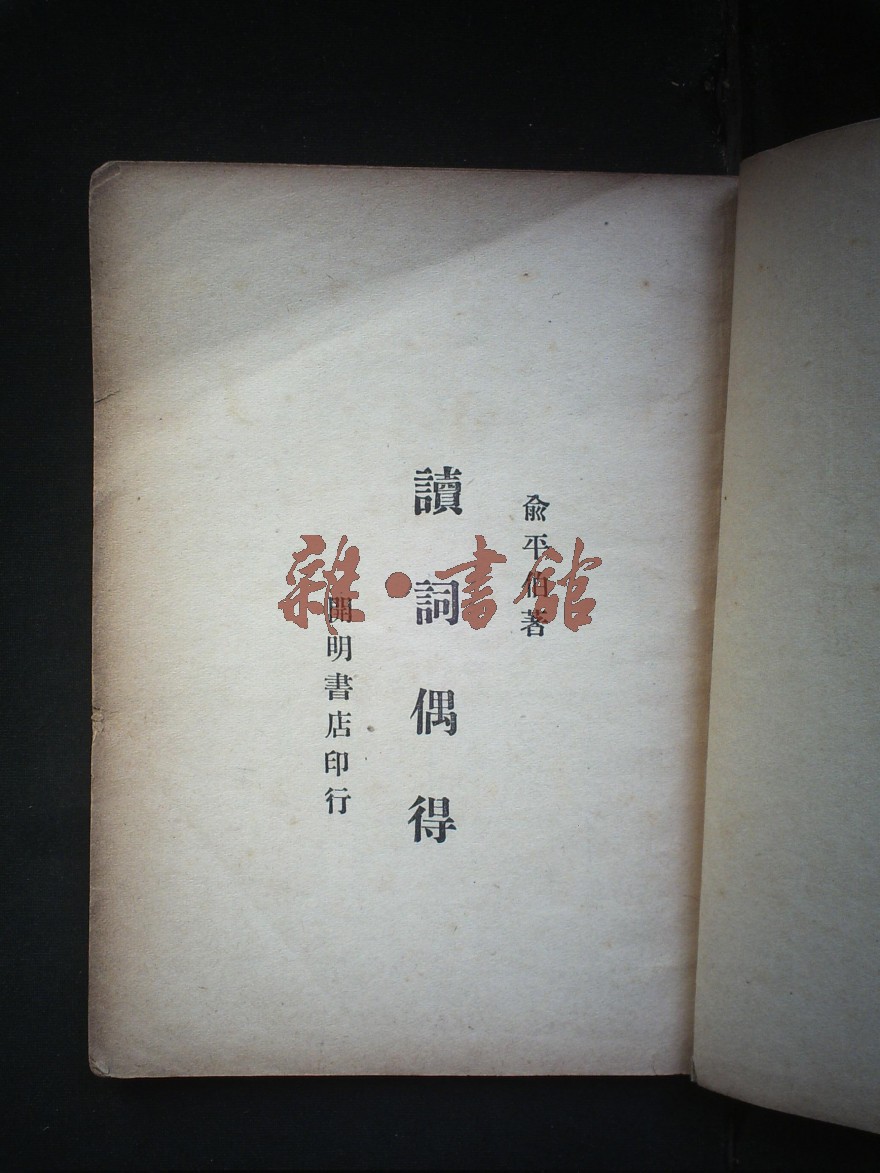 俞平伯著
讀詞偶得
開明書店印行
雜·書館